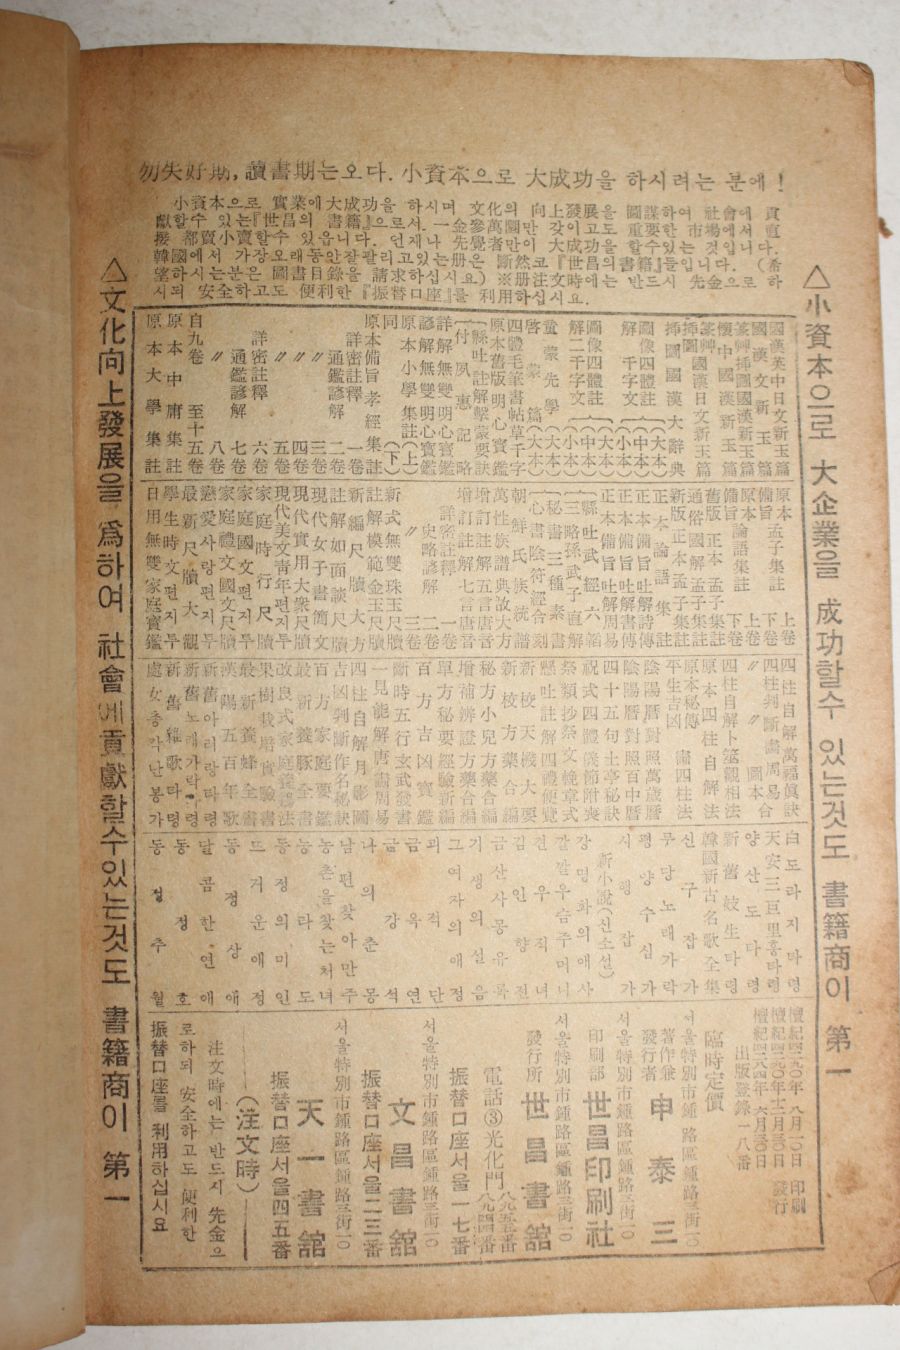 勿失好期, 讀書期는오다. 小資本으로 大成功을 하시려는 분에!
小資本으로 實業에大成功을 하시며 文化의 向上發展을 圖謀하여 社會에 貢
獻할수 있는『世昌의 書籍』으로서. 一金參萬圓만 갖이고도 重要한 市場에서 直
接 都賣小賣할수 있읍니다. 언제나 先覺者만이 大成功을 할수있는 것입니다.
韓國에서 가장오래동안잘팔리고있는册은 斷然코『世昌의書籍』들입니다. (希
望하시는분은 圖書目錄을 請求하십시요) ※册注文時에는 반드시 先金으로 하
시되 安全하고도 便利한『振替口座』를 利用하십시요.
△小資本으로 大企業을 成功할수 있는것도 書籍商이 第一
國漢英中日文新玉篇
國漢文新玉篇
篆艸揷圖國漢新玉篇
懷中國漢新玉篇
篆艸國漢日文新玉篇
揷圖國漢文新玉篇
揷圖國漢大辭典
圖像四體註解千字文(大本)
(小本)
圖像四體註解二千字文(中本)
(小本)
童蒙先學(大本)
啓蒙篇(大本)
四體毛筆書帖草千字
原本舊版明心寶鑑
縣吐註解擊蒙要訣
(付)夙惠記略
詳解無雙明心寶鑑
諺解無雙明心寶鑑
原本小學集註(上)
同(下)
原本備旨孝經集註
詳密註釋通鑑諺解 一卷
二卷
〃 三卷
〃 四卷
〃 五卷
詳密註釋通鑑諺解 六卷
七卷
〃 八卷
自九卷 至十五卷
原本中庸集註
原本大學集註
原本備旨孟子集註 上卷
下卷
原本備旨論語集註 上卷
下卷
舊版正本孟子集註
通俗國解孟子集註
新版正本孟子集註
正本論語集註
正本備旨吐解詩傳
正本備旨吐解書傳
正本備旨吐解周易
縣吐武經六韜
三略孫武子直解
秘書三種素書
心書陰符經合刻
朝鮮氏族統譜
萬性族譜典故大方
增訂註解五言唐音
增訂註解七言唐音
詳密註釋史略諺解 一卷
二卷
〃 三卷
新式無雙珠玉尺牘
註解模範金玉尺牘
新編尺牘大方
註解如面談尺牘
現代女子書簡文
現代實用大衆尺牘
現代美文靑年편지투
家庭時行尺牘
家庭國文尺牘
家庭禮文편지투
戀愛사랑편지투
最新尺牘大觀
學生時文편지투
日用無雙家庭寶鑑
四柱自解萬福眞訣
四柱判斷畵周易
〃 〃 圖本合
四柱自解卜筮觀相法
原本四柱自解法
原本秘傳平生吉凶 畵四柱法
陰陽曆對照萬歲曆
陰陽曆對照百中曆
四十五句土亭秘訣
祝式四體儀節附喪
祭類抄祭文輓章式
懸吐註解四禮便覽
新校天機大要
新校方藥合編
秘方小兒方藥合編
增補辨證方藥合編
單方秘要經驗新編
百方吉凶寶鑑
斷時五行玄武發書
一見能解唐畵周易
四柱自解月影圖
吉凶判斷作名秘訣
百方家庭要鑑
最新養豚全書
改良式家庭養鷄法
果樹栽培實驗書
最新養蜂全書
漢陽五百年歌
新舊아리랑타령
新舊노래가락타령
新舊雜歌타령
處女총각난봉가
白도라지타령
天安三巨里흥타령
양산도타령
新舊妓生타령
韓國新古名歌全集
신구잡가
무당노래가락
평양수심가
시행잡가
新小說(신소설)
강명화의애사
깔깔우슴주머니
견우직녀
김인향전
금산사몽유록
기생의설음
그여자의애정
괴적단
금옥연
금강석
나의춘몽
남편찾아만주
농촌을찾는처녀
능라도
동정의미인
뜨거운애정
동정상애
달콤한연애
동정호
동정주월
檀紀四二八四年 六月三〇日 發行
出版登錄一八番
臨時定價
서울特別市鍾路區鍾路三街一〇
著作兼發行者 申泰三
서울特別市鍾路區鍾路三街一〇
印刷部 世昌印刷社
서울特別市鍾路區鍾路三街一〇
發行所 世昌書舘
電話③光化門
振替口座서울一七番
서울特別市鍾路區鍾路三街一〇
文昌書舘
振替口座서울二三番
서울特別市鍾路區鍾路三街一〇
天一書舘
振替口座서울四五番
(注文時)
注文時에는 반드시 先金으
로하되 安全하고도 便利한
振替口座를 利用하십시요
△文化向上發展을 爲하여 社會에貢獻할수있는것도 書籍商이 第一